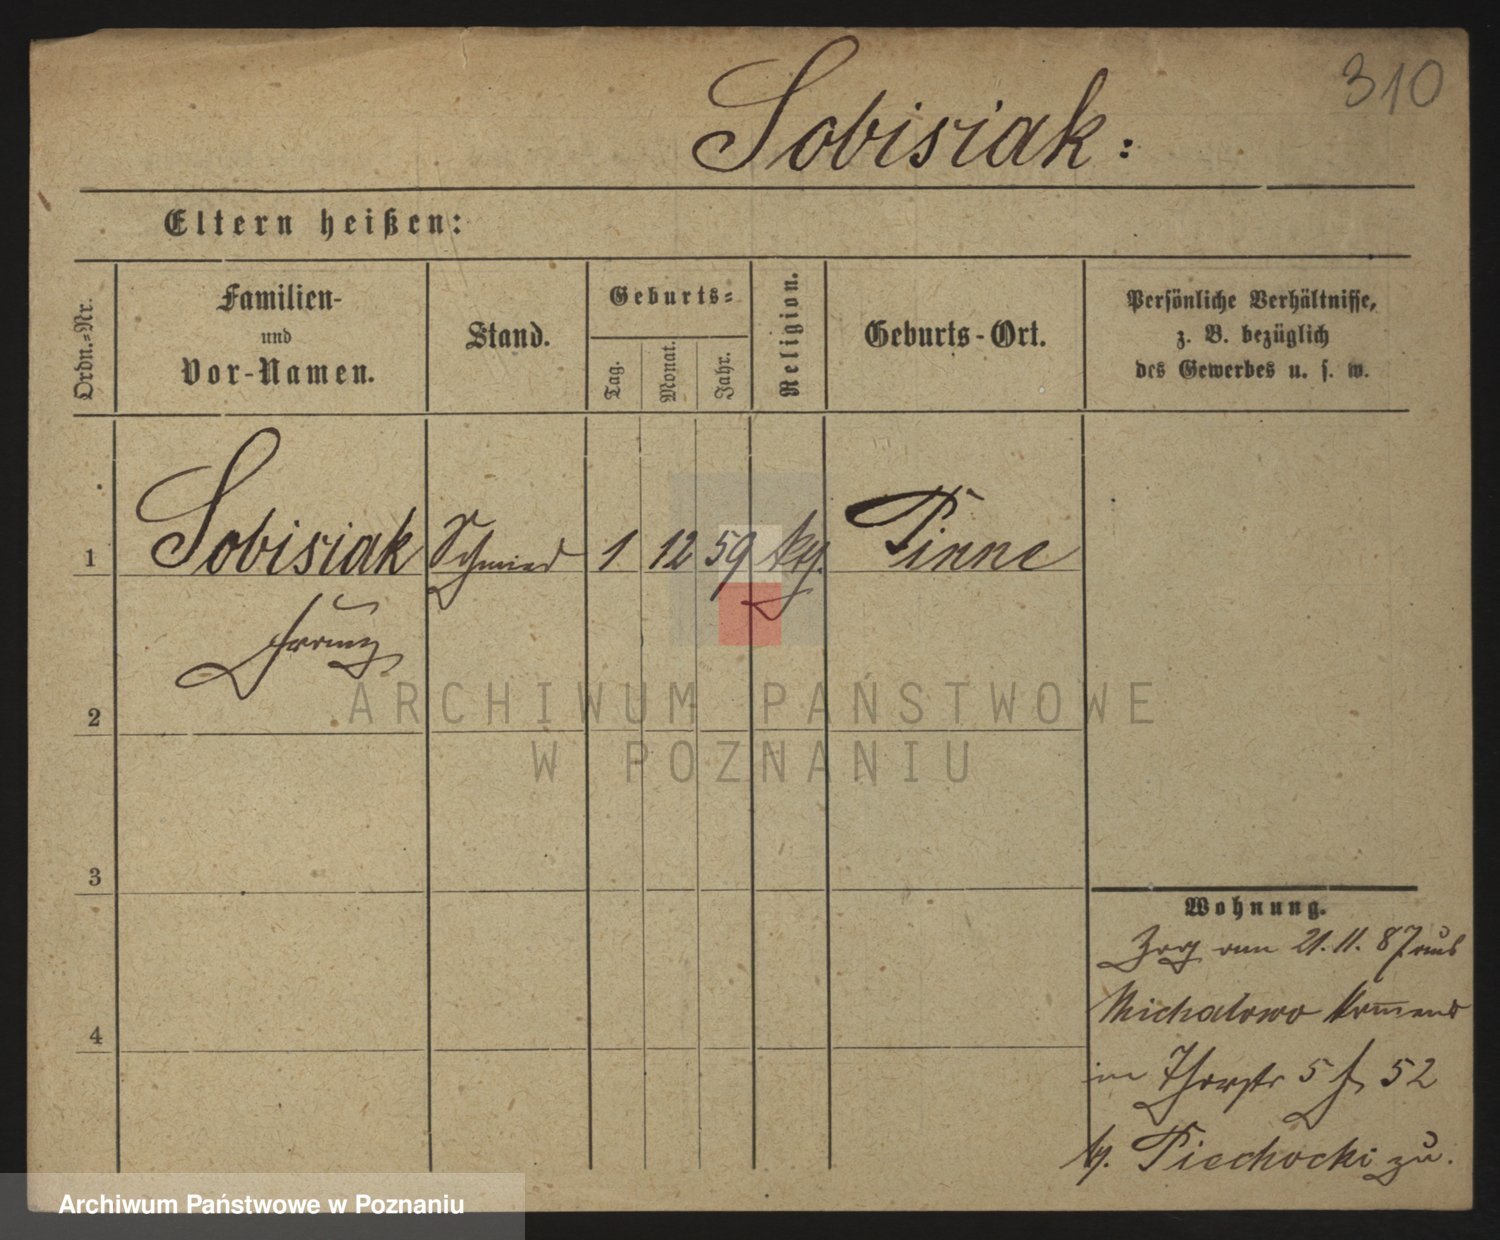 310
Sobisiak:
Eltern heißen:
Ordn.-Nr.
Familien-
und
Vor-Namen.
Stand.
Geburts-
Tag.
Monat.
Jahr.
Religion.
Geburts-Ort.
Persönliche Verhältnisse,
z. B. bezüglich
des Gewerbes u. s. w.
1 Sobisiak Schmied 1 12 59 kth. Pinne
Franz
2
3
4
Wohnung.
Zog am 21.11.87 aus
Michalowo kommend
in Thorstr 5 52
b. Piechocki zu.
ARCHIWUM PAŃSTWOWE
W POZNANIU
Archiwum Państwowe w Poznaniu